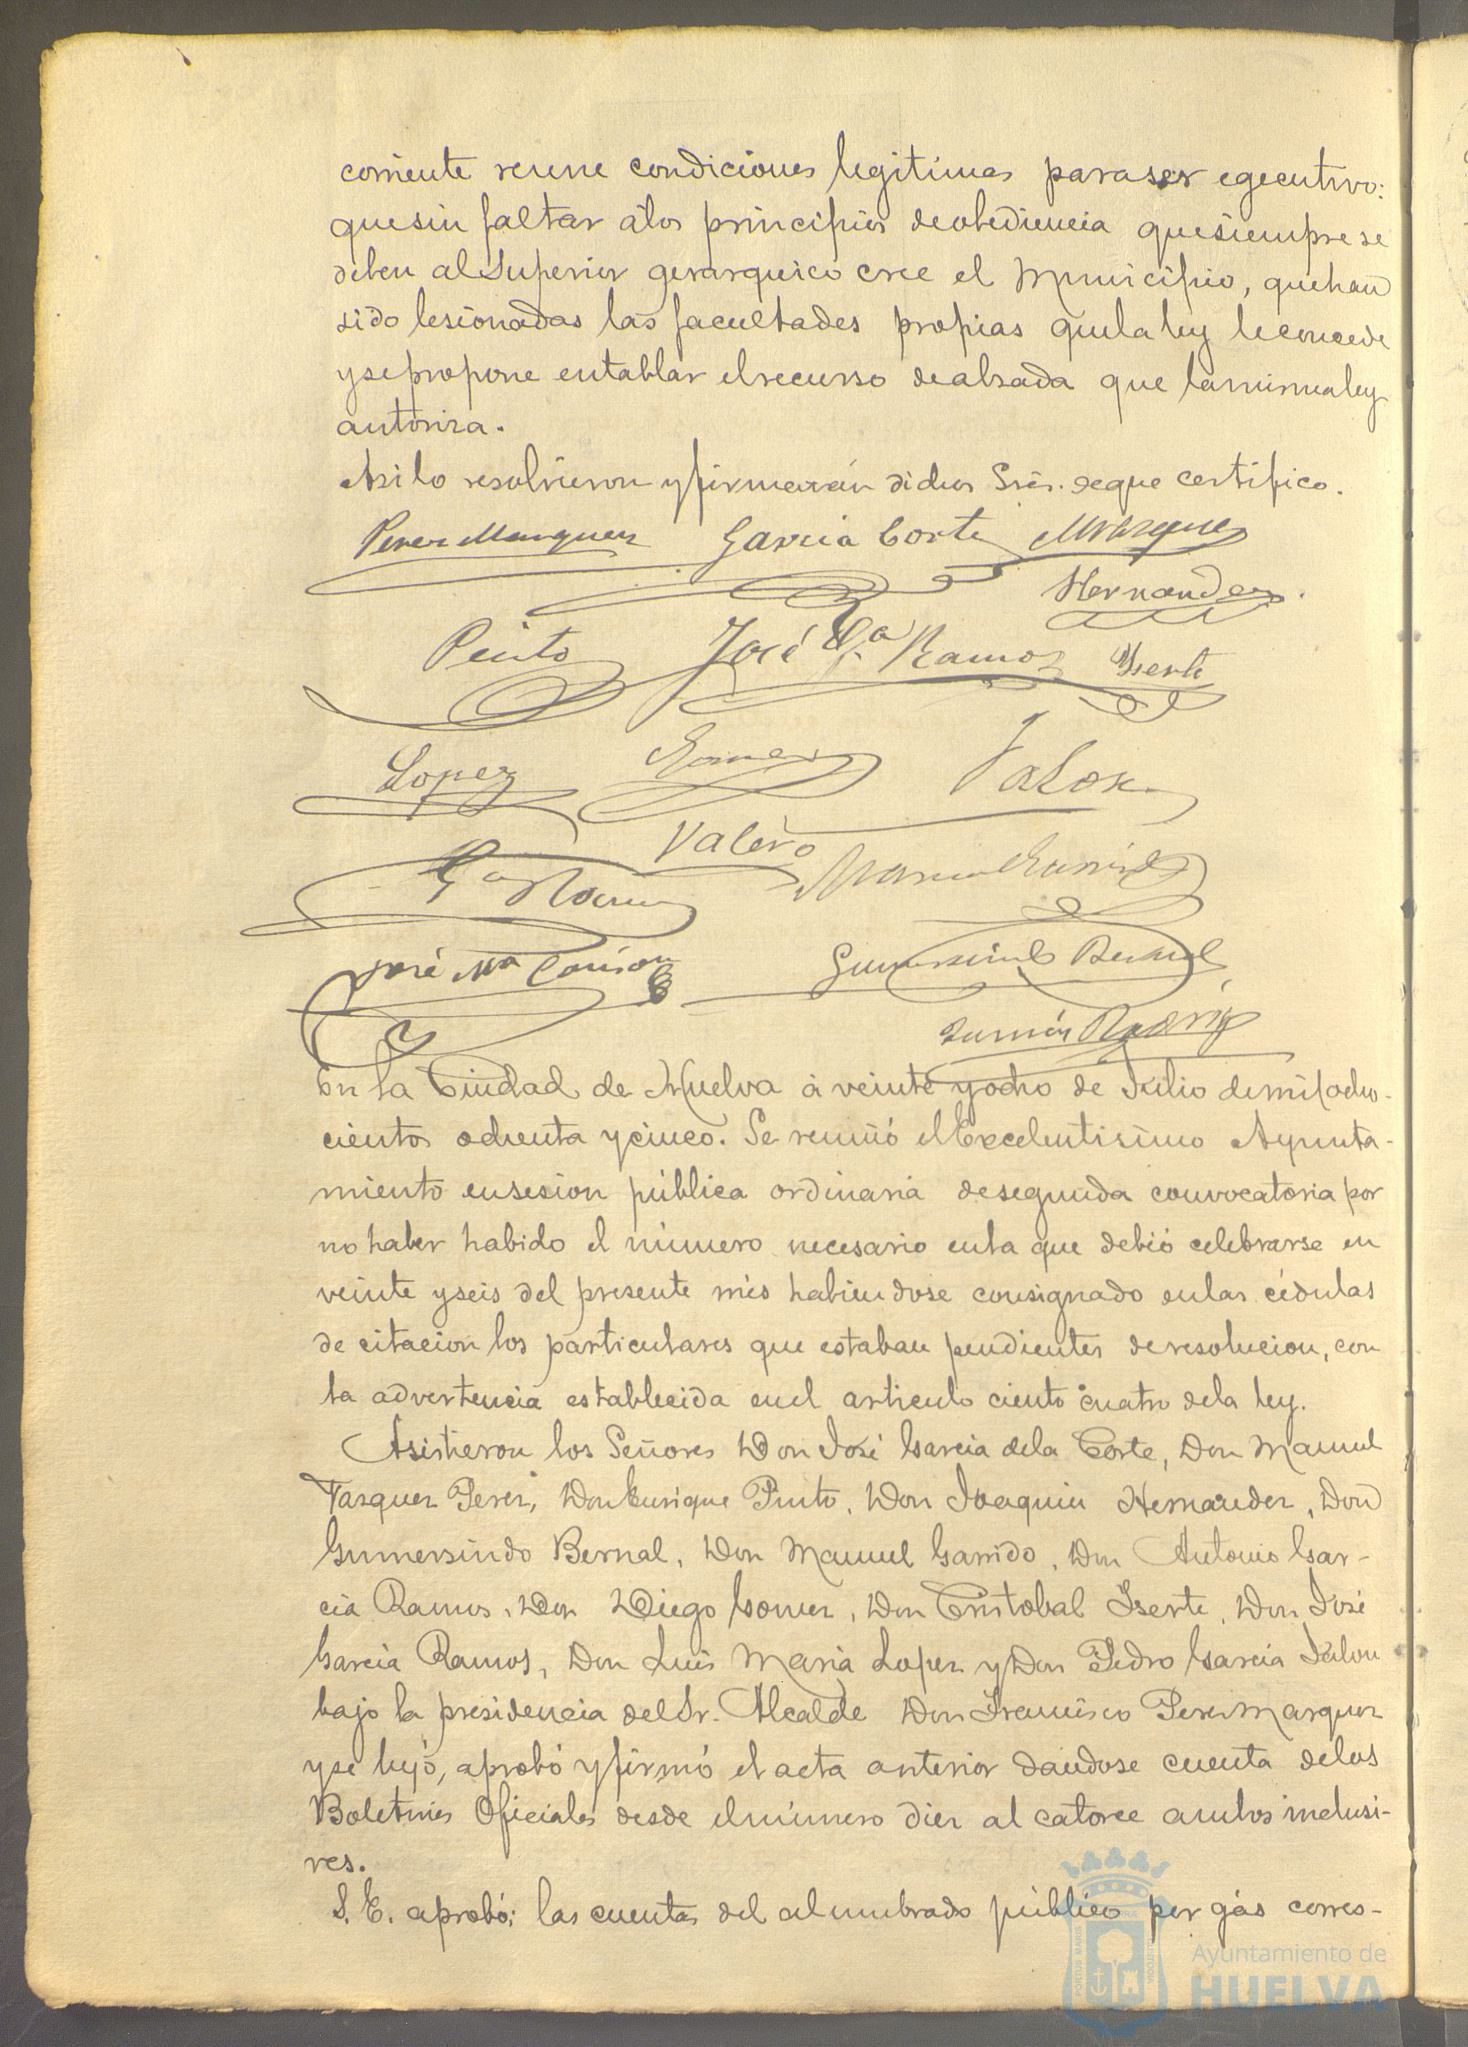 corriente reune condiciones legitimas para ser egecutivo:
que sin faltar á los principios de obediencia que siempre se
deben al Superior gerarquico cree el Municipio, que han
sido lesionadas las facultades propias que la ley le concede
y se propone entablar el recurso de alzada que la misma ley
autoriza.
Asi lo resolvieron y firmarán dichos Sres. de que certifico.
Perez Marquez Garcia Corte M Vazquez
Hernandez
Pinto José Ga Ramos Iserte
Lopez Gomez Jalon
Valero
Ga Ramos Manuel Garrido
José Ma Gumersindo Bernal
Ramón Rodrig
En la Ciudad de Huelva á veinte y ocho de Julio de mil ocho-
cientos ochenta y cinco. Se reunió el Excelentisimo Ayunta-
miento en sesion pública ordinaria de segunda convocatoria por
no haber habido el número necesario en la que debió celebrarse en
veinte y seis del presente mes habiendose consignado en las cédulas
de citacion los particulares que estaban pendientes de resolucion, con
la advertencia establecida en el articulo ciento cuatro de la ley.
Asistieron los Señores Don José Garcia de la Corte, Don Manuel
Vazquez Perez, Don Enrique Pinto, Don Joaquin Hernandez, Don
Gumersindo Bernal, Don Manuel Garrido, Don Antonio Gar-
cia Ramos, Don Diego Gomez, Don Cristobal Iserte, Don José
Garcia Ramos, Don Luis Maria Lopez y Don Pedro Garcia Jalon
bajo la presidencia del Sr. Alcalde Don Francisco Perez Marquez
y se leyó, aprobó y firmó el acta anterior dandose cuenta de los
Boletines Oficiales desde el número diez al catorce ambos inclusi-
ves.
S. E. aprobó: las cuentas del alumbrado público por gas corres-
Ayuntamiento de
HUELVA